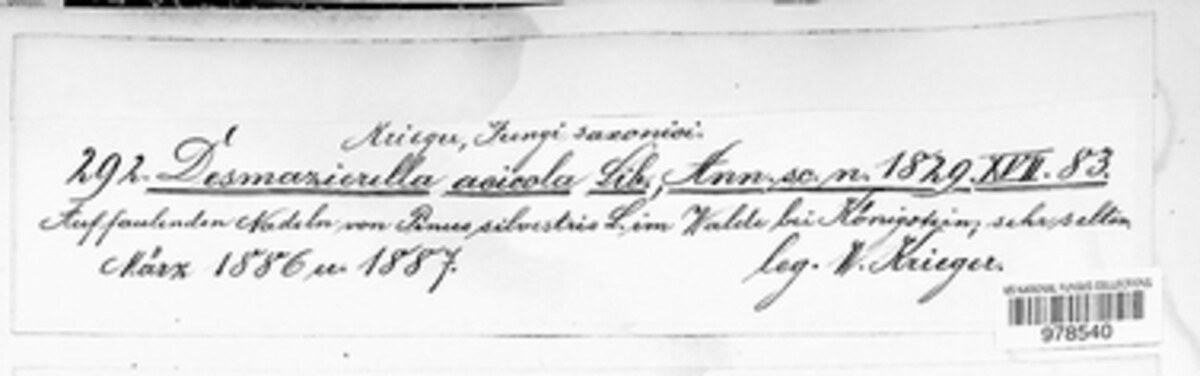 Krieger, Fungi saxonici.
292. Désmazierella acicola Lib., Ann. sc. n. 1829. XVII. 83.
Auf faulenden Nadeln von Pinus silvestris L. im Walde bei Königstein, sehr selten
März 1886 u. 1887.
leg. W. Krieger.
US NATIONAL FUNGUS COLLECTIONS
978540